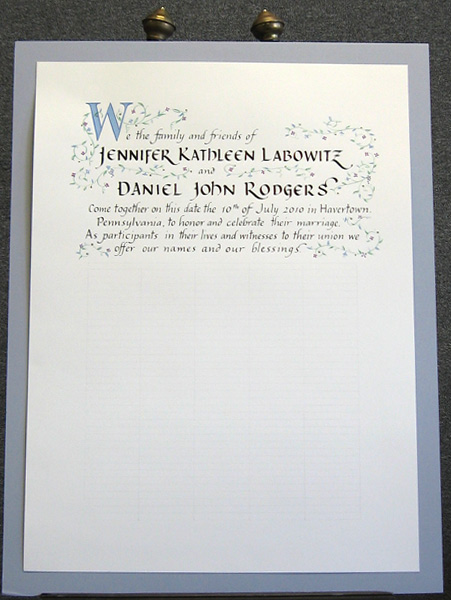 We the family and friends of
Jennifer Kathleen Labowitz
and
Daniel John Rodgers
Come together on this date the 10th of July 2010 in Havertown,
Pennsylvania, to honor and celebrate their marriage.
As participants in their lives and witnesses to their union we
offer our names and our blessings.